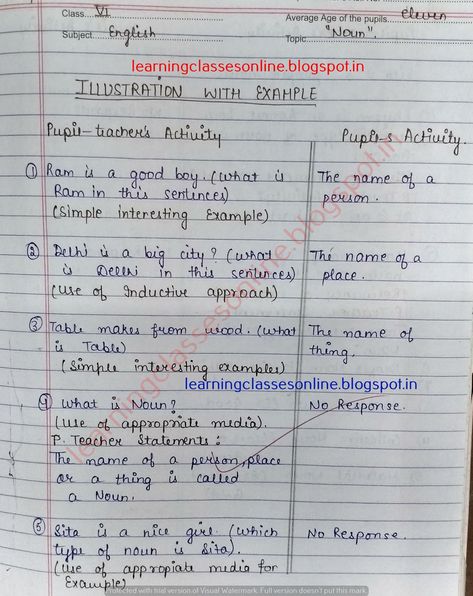 Class VI Average Age of the pupils eleven
Subject English Topic "Noun".
learningclassesonline.blogspot.in
ILLUSTRATION WITH EXAMPLE
Pupil-teacher's Activity Pupil-s Activity.
① Ram is a good boy. (what is The name of a
Ram in this sentences) person.
(Simple interesting Example)
② Delhi is a big city? (what The name of a
is Delhi in this sentences) place.
(use of Inductive approach)
③ Table makes from wood. (what The name of
is Table) thing.
(Simple interesting examples)
learningclassesonline.blogspot.in
④ What is Noun? No Response.
(Use of appropriate media).
P. Teacher Statements:
The name of a person, place
or a thing is called
a Noun.
⑤ Sita is a nice girl (which No Response.
type of noun is Sita).
(Use of appropiate media for
Example)
learningclassesonline.blogspot.in
Protected with trial version of Visual Watermark. Full version doesn't put this mark.